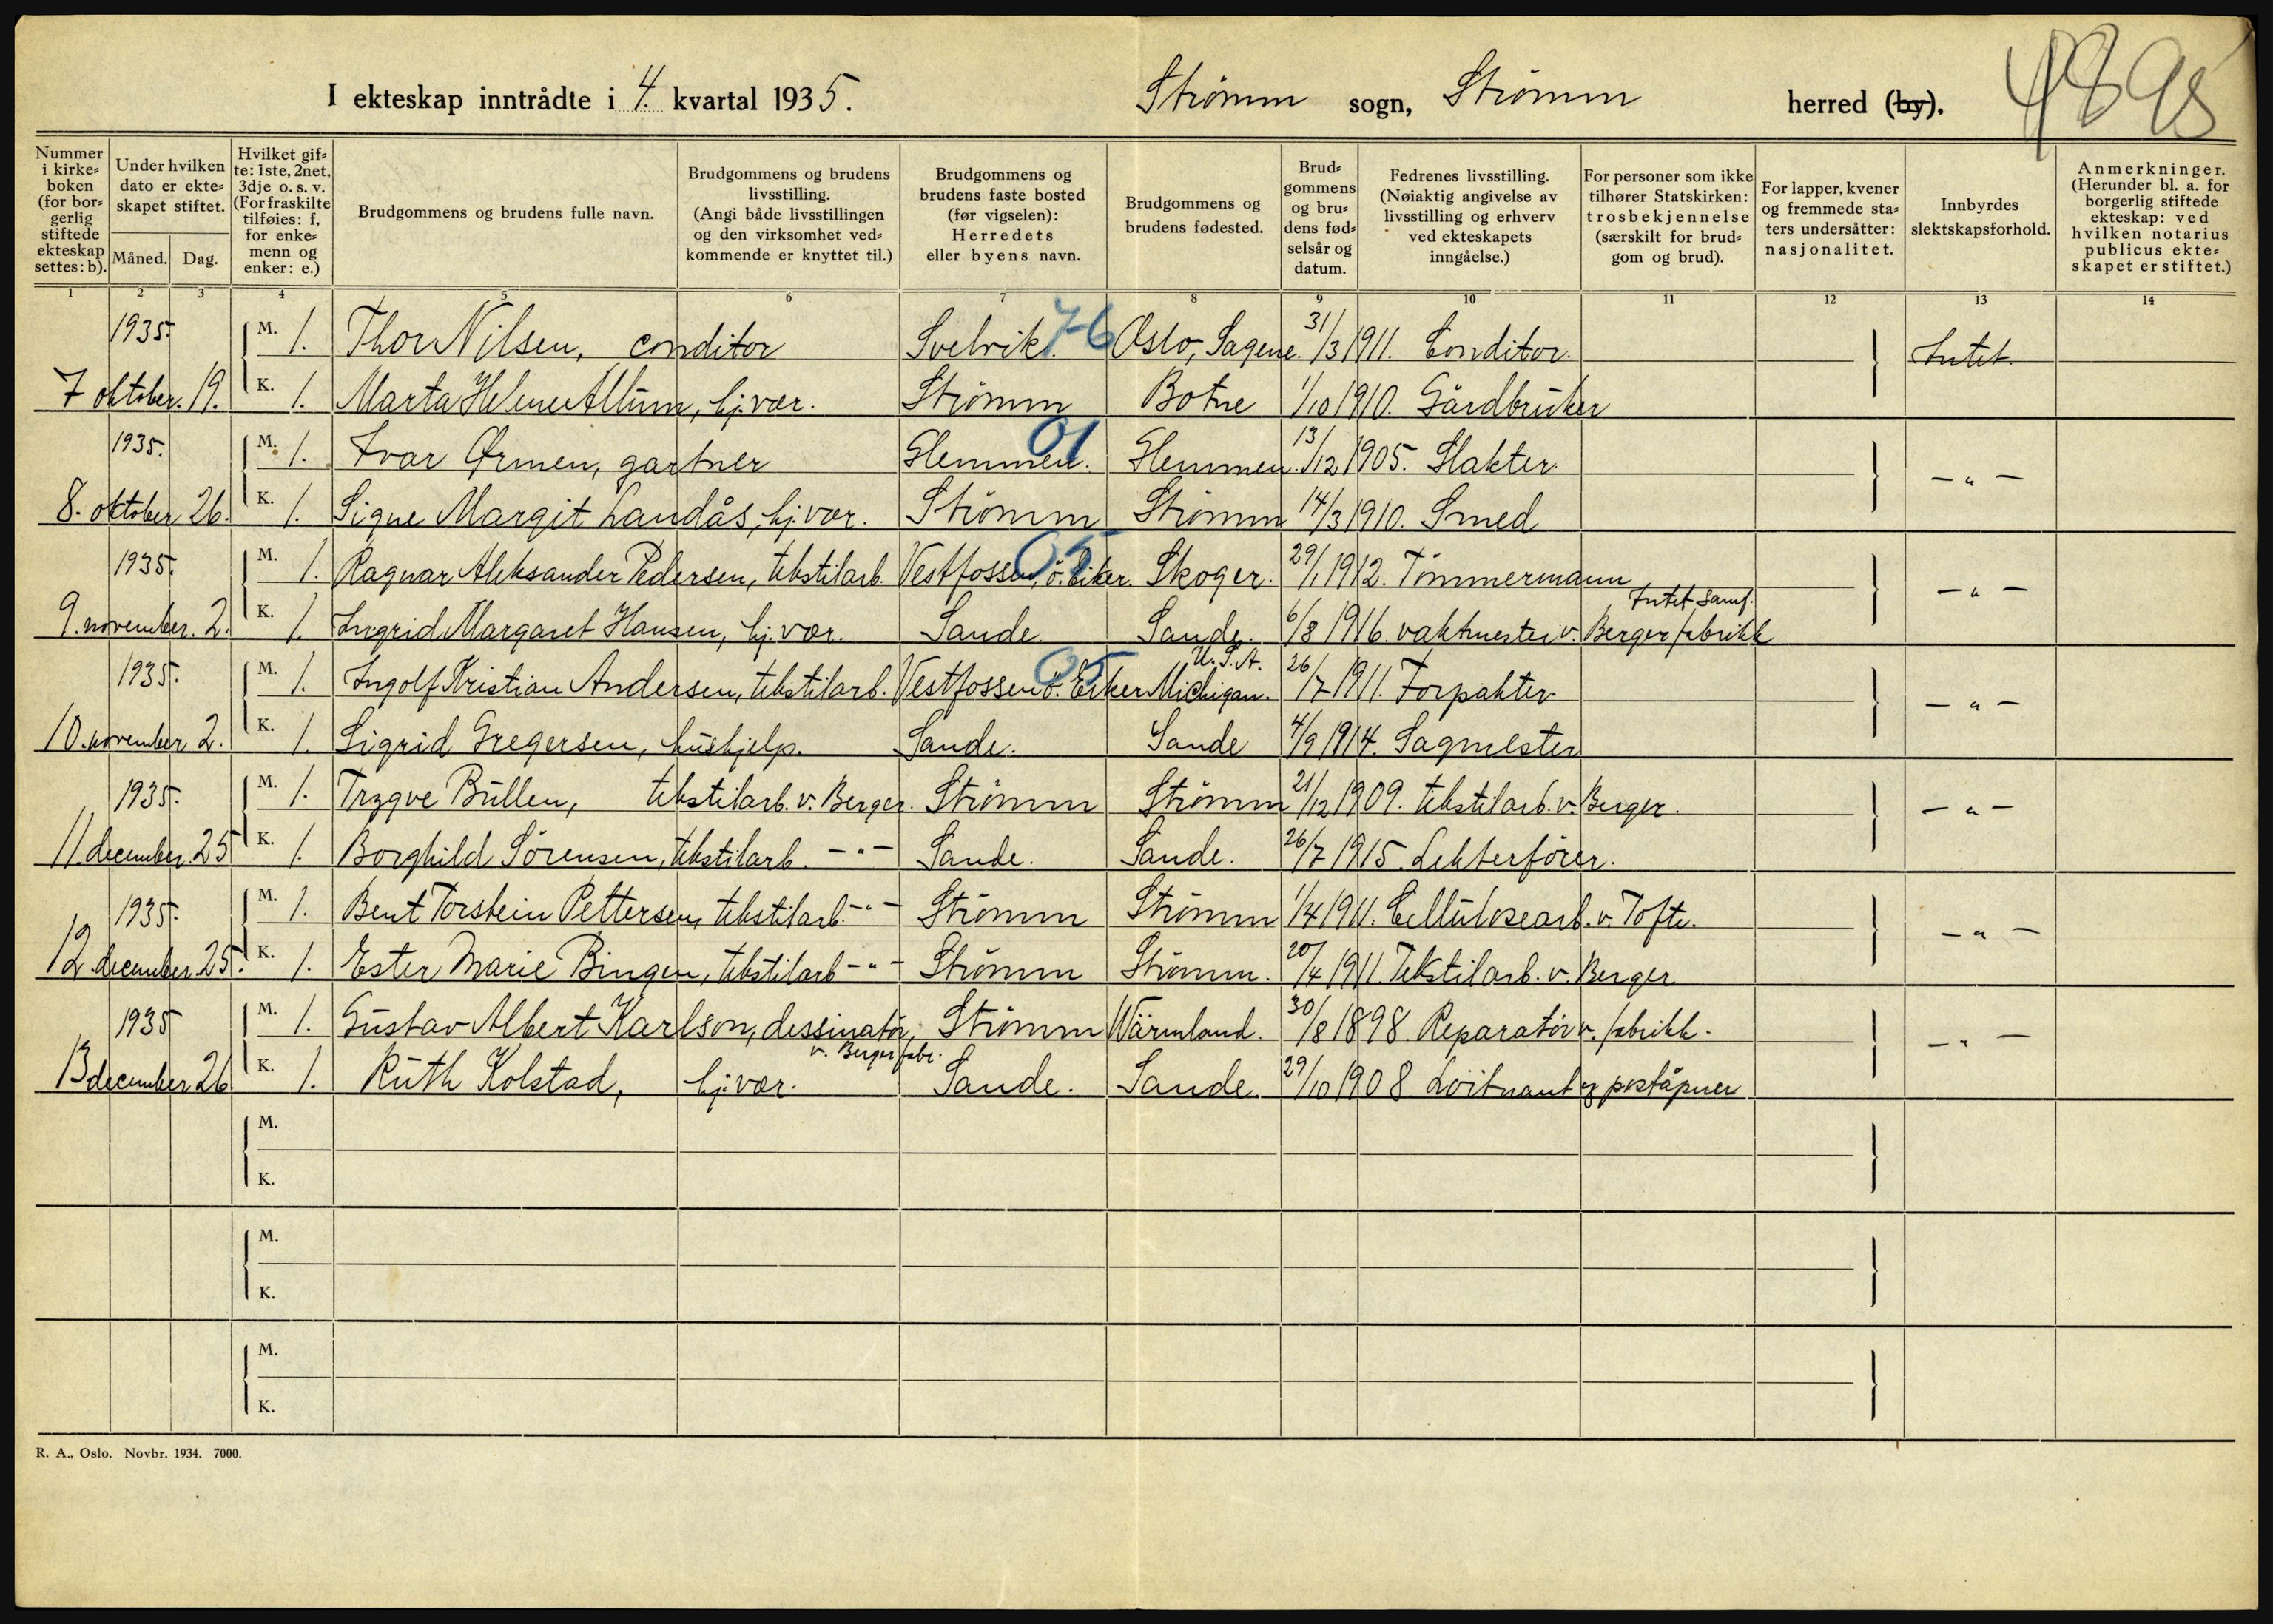 I ekteskap inntrådte i 4. kvartal 1935. Strömm sogn, Strömm herred (by).
4895
Nummer i kirkeboken (for borgerlig stiftede ekteskap settes: b).
Under hvilken dato er ekteskapet stiftet.
Måned. Dag.
Hvilket gifte: 1ste, 2net, 3dje o. s. v. (For fraskilte tilføies: f, for enkemenn og enker: e.)
Brudgommens og brudens fulle navn.
Brudgommens og brudens livsstilling. (Angi både livsstillingen og den virksomhet vedkommende er knyttet til.)
Brudgommens og brudens faste bosted (før vigselen): Herredets eller byens navn.
Brudgommens og brudens fødested.
Brudgommens og brudens fødselsår og datum.
Fedrenes livsstilling. (Nøiaktig angivelse av livsstilling og erhverv ved ekteskapets inngåelse.)
For personer som ikke tilhører Statskirken: trosbekjennelse (særskilt for brudgom og brud).
For lapper, kvener og fremmede staters undersåtter: nasjonalitet.
Innbyrdes slektskapsforhold.
Anmerkninger. (Herunder bl. a. for borgerlig stiftede ekteskap: ved hvilken notarius publicus ekteskapet er stiftet.)
1 2 3 4 5 6 7 8 9 10 11 12 13 14
1935. M. 1. Thor Nilsen, conditor Svelvik. 76 Oslo, Sagene. 31/3 1911. Conditor. Intet.
7 oktober. 19. K. 1. Marta Helene Allum, hj.vær. Strömm Botne 1/10 1910. Gårdbruker
1935. M. 1. Ivar Ørmen, gartner Glemmen. 01 Glemmen. 13/12 1905. Slakter. — " —
8. oktober 26. K. 1. Signe Margit Landås, hj.vær. Strömm Strömm 14/3 1910. Smed
1935. M. 1. Ragnar Aleksander Pedersen, tekstilarb. Vestfossen, ö. Eiker. 05 Skoger. 29/1 1912. Tömmermann — " —
9. november. 2. K. 1. Ingrid Margaret Hansen, hj.vær. Sande Sande. 6/8 1916. vaktmester v. Berger fabrikk Intet samf.
1935. M. 1. Ingolf Kristian Andersen, tekstilarb. Vestfossen ö. Eiker 05 Michigan. U.S.A. 26/7 1911. Forpakter. — " —
10. november 2. K. 1. Sigrid Gregersen, hushjelp. Sande. Sande 4/9 1914. Sagmester
1935. M. 1. Trygve Bullen, tekstilarb. v. Berger. Strömm Strömm 21/12 1909. tekstilarb. v. Berger. — " —
11. december. 25 K. 1. Borghild Sörensen, tekstilarb. — " — Sande. Sande. 26/7 1915. Lekterförer.
1935. M. 1. Bent Torstein Pettersen, tekstilarb. — " — Strömm Strömm 1/4 1911. Cellulosearb. v. Tofte. — " —
12. december 25. K. 1. Ester Marie Bingen, tekstilarb — " — Strömm Strömm. 20/4 1911. Tekstilarb. v. Berger
1935 M. 1. Gustav Albert Karlson, dessinatör, v. Berger fabr. Strömm Wärmland. 30/8 1898. Reparatör v. fabrikk. — " —
13 december 26. K. 1. Ruth Kolstad, hj.vær. Sande. Sande. 29/10 1908. Löitnant og poståpner
M.
K.
M.
K.
M.
K.
R. A., Oslo. Novbr. 1934. 7000.